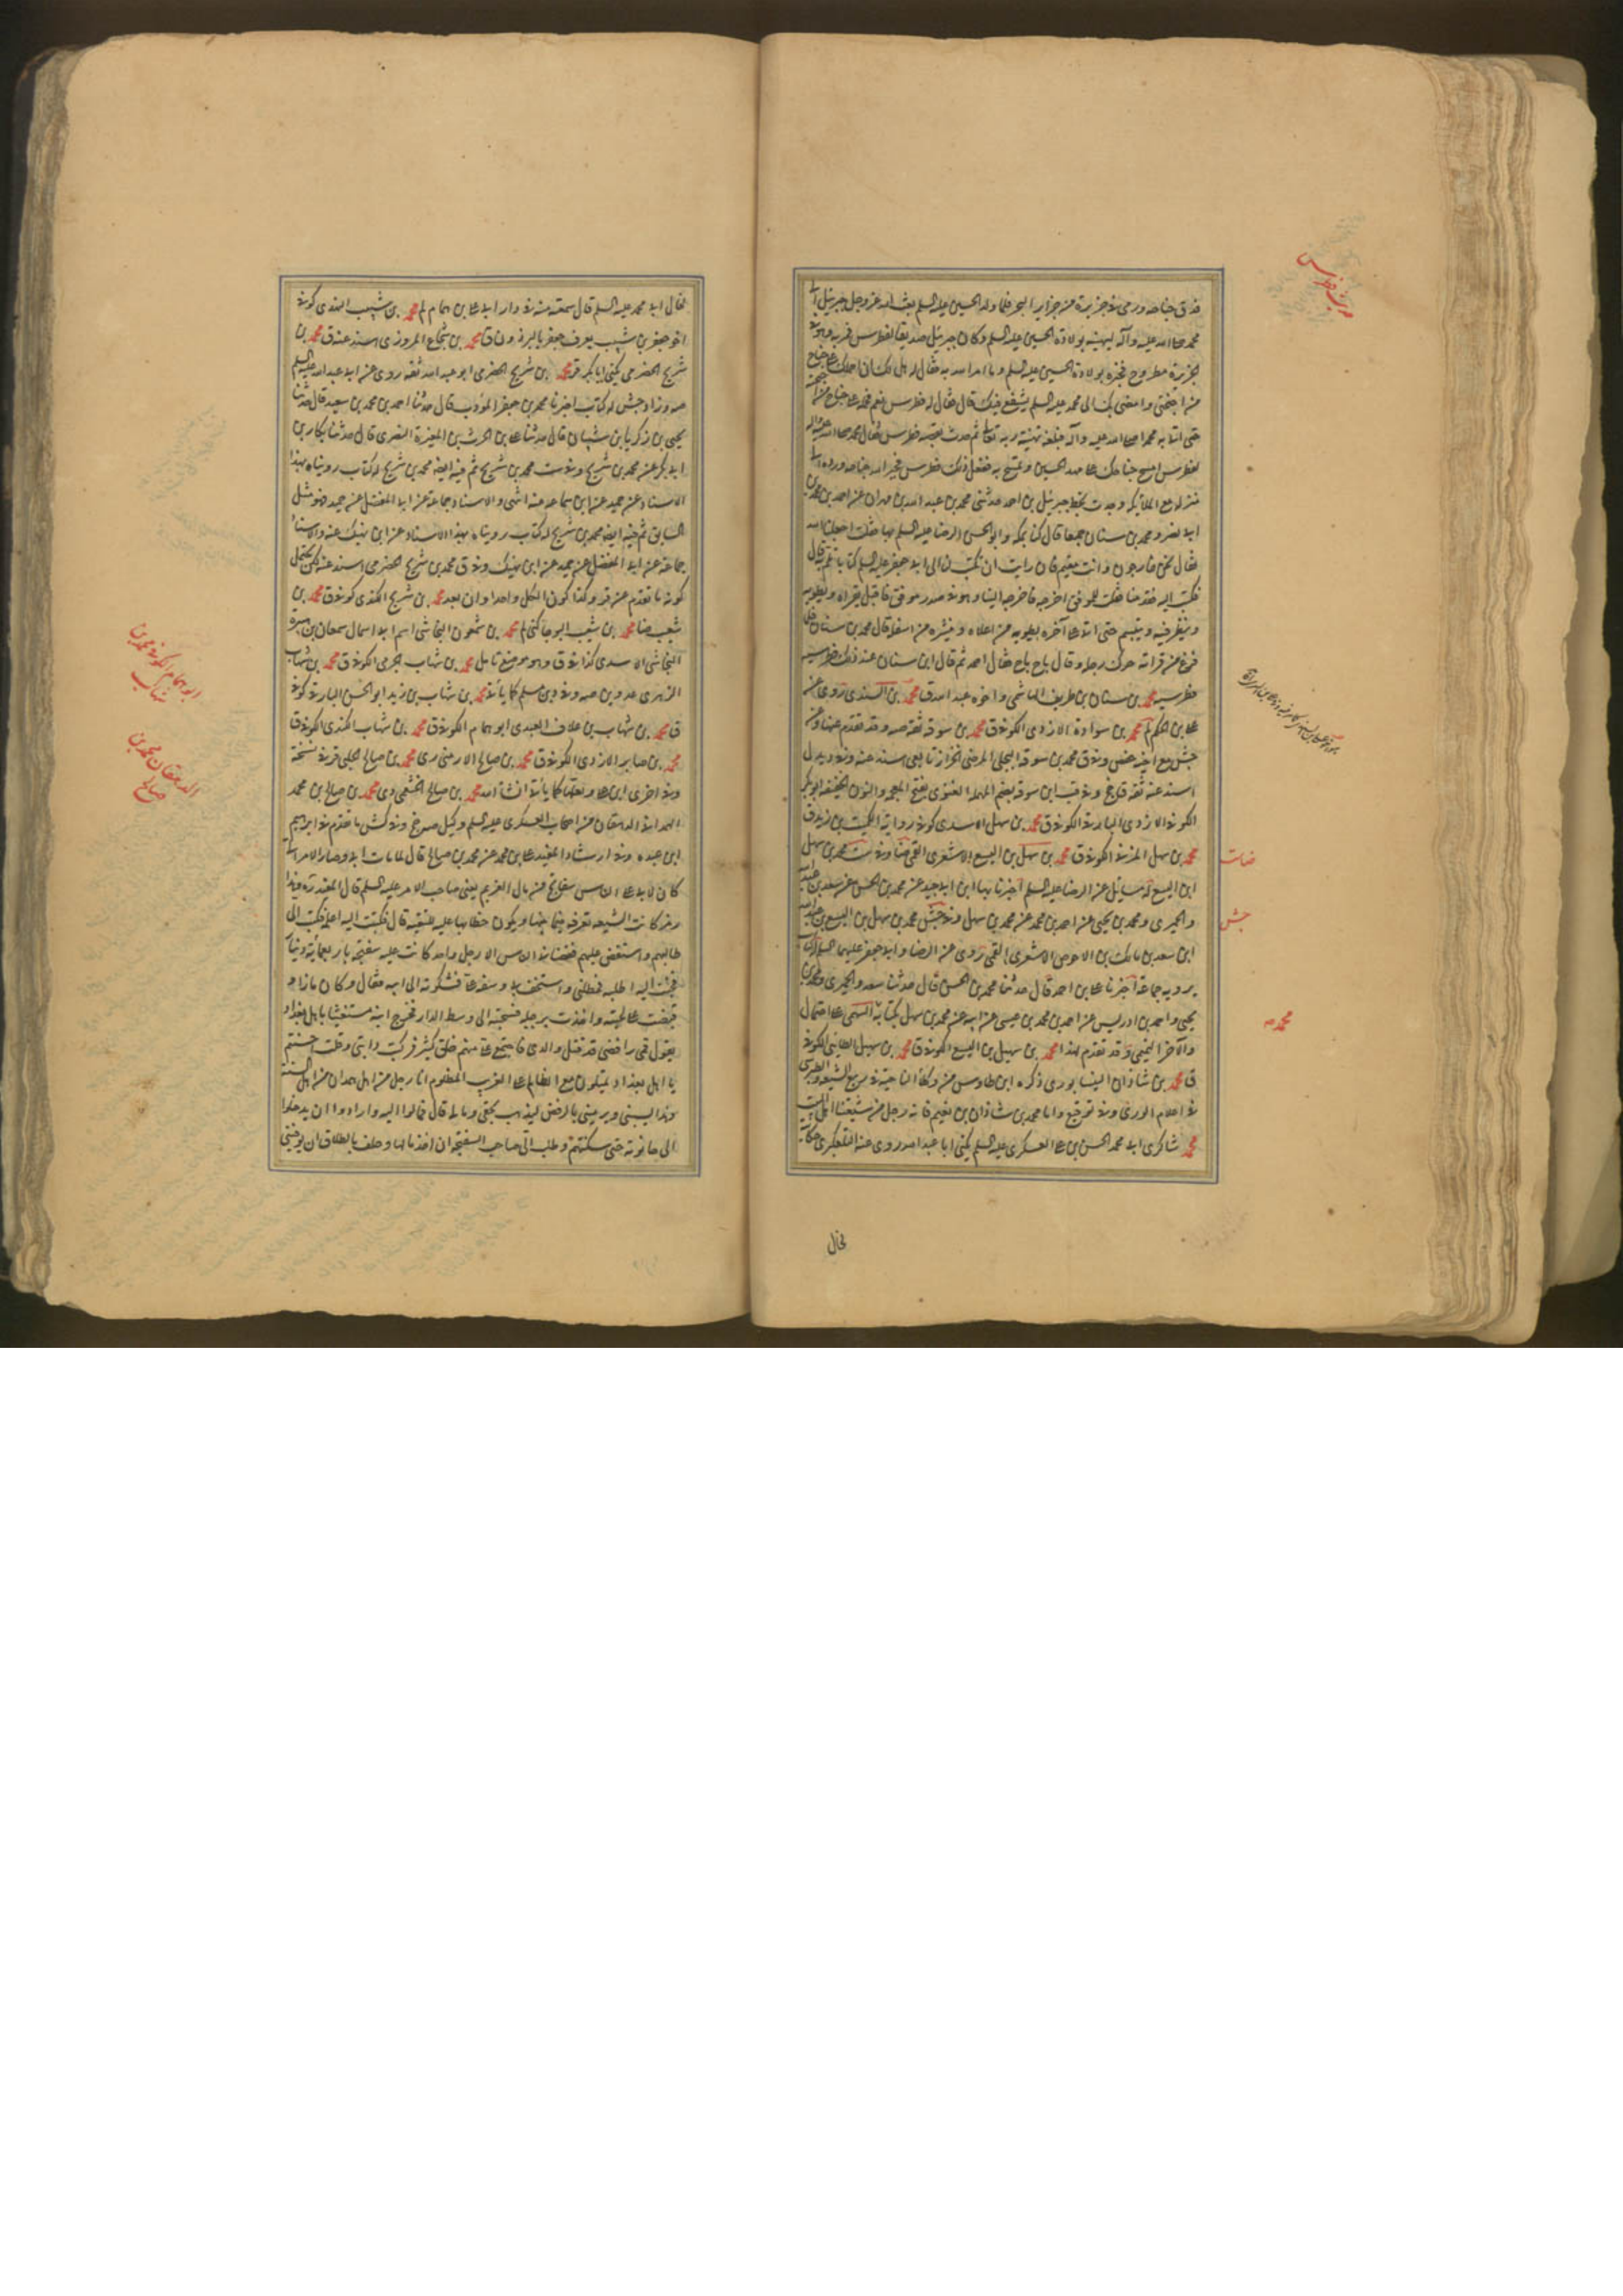 فدق جناحه ورمى في جزيرة من جزاير البحر فلما ولد الحسين عليه السلم بعث الله عز وجل جبرئيل الى
محمد صلى الله عليه وآله ليهنيه بولادة الحسين عليه السلم وكان جبرئيل صديقا لفطرس فمر به وهو في
الجزيرة مطروح فخبره بولادة الحسين عليه السلم وما امر الله به فقال له هل لك ان احملك على جناح
من اجنحتي وامضي بك الى محمد عليه السلم يشفع فيك قال فقال له فطرس نعم فحمله على جناح من اجنحته
حتى اتى به محمدا صلى الله عليه وآله فبلغه تهنية ربه تعالى ثم حدثه بقصة فطرس فقال محمد صلى الله عليه وآله
لفطرس امسح جناحك على مهد الحسين وتمسح به ففعل ذلك فطرس فجبر الله جناحه ورده الى
منزله مع الملائكة وجدت بخط جبرئيل بن احمد حدثني محمد بن عبد الله بن مهران عن احمد بن محمد بن
ابي نصر ومحمد بن سنان جميعا قال كنا بمكة وابو الحسن الرضا عليه السلم بها فقلنا له جعلنا الله
فقال نحن خارجون وانت مقيم فان رايت ان تكتب لنا الى ابي جعفر عليه السلم كتابا نلم به قال
فكتب اليه فقدمنا فقلنا للموفق اخرجه فاخرجه الينا وهو في صدر موفق فاقبل يقراه ويطويه
وينظر فيه ويتبسم حتى اتى على آخره يطويه من اعلاه وينشره من اسفله قال محمد بن سنان فلما
فرغ من قراته حرك رجله وقال ناج ناج فقال احمد ثم قال ابن سنان عند ذلك فطرسيه
فطرسيه محمد بن سنان بن طريف الهاشمي واخوه عبد الله ق محمد بن السندي روى عنه
علي بن الحكم لم محمد بن سوادة الازدي الكوفي ق محمد بن سوقه ثقة صه وقد تقدم عنها وعن
جش مع اخيه حفص وفي ق محمد بن سوقة البجلي المرضي الخزاز تابعي اسند عنه وفي
اسند عنه ثقة
الكوفي الازدي البارقي الكوفي ق محمد بن سهل الاسدي كوفي رواية الكميت بن زيد ق
محمد بن سهل المزني الكوفي ق محمد بن سهل بن اليسع الاشعري القمي ضا وفي ست محمد بن سهل
ابن اليسع له مسائل عن الرضا عليه السلم اخبرنا بها ابن ابي جيد عن محمد بن الحسن عن سعد بن عبد الله
والحميري ومحمد بن يحيى عن احمد بن محمد عن محمد بن سهل وفي جش محمد بن سهل بن اليسع بن عبد الله
ابن سعد بن مالك بن الاحوص الاشعري القمي روى عن الرضا وابي جعفر عليهما السلم له كتاب
يرويه جماعة اخبرنا علي بن احمد قال حدثنا محمد بن الحسن قال حدثنا سعد والحميري ومحمد بن
يحيى واحمد بن ادريس عن احمد بن محمد بن عيسى عن ابيه عن محمد بن سهل بكتابه انتهى على احتمال
والآخر الخثعمي وقد تقدم لهذا محمد بن سهيل بن اليسع الكوفي ق محمد بن سهيل الطائي الكوفي
ق محمد بن شاذان النيسابوري ذكره ابن طاوس من وكلاء الناحية في ربيع الشيعة والطبرسي
في اعلام الورى وفي توقيع واما محمد بن شاذان بن نعيم فانه رجل من شيعتنا اهل البيت
محمد شاكري ابي محمد الحسن بن علي العسكري عليه السلم يكنى ابا عبد الله روى عنه التلعكبري حكاية
لخال
ضات
جش
محمد صه
لخال ابي محمد عليه السلم قال سمعته منه في دار ابي علي بن همام لم محمد بن شبيب النهدي كوفي
اخو جعفر بن شبيب يعرف جعفر بالبرذون ق محمد بن شجاع المروزي اسند عنه ق محمد بن
شريح الحضرمي يكنى ابا بكر قر محمد بن شريح الحضرمي ابو عبد الله ثقة روى عن ابي عبد الله عليه السلم
صه وزاد جش له كتاب اخبرنا محمد بن جعفر المؤدب قال حدثنا احمد بن محمد بن سعيد قال حدثنا
يحيى بن زكريا بن شيبان قال حدثنا علي بن الحرث بن المغيرة النصري قال حدثنا بكار بن
ابي بكر عن محمد بن شريح وفي ست محمد بن شريح ثم فيه ايضا محمد بن شريح له كتاب رويناه بهذا
الاسناد عن حميد عن ابن سماعه عنه انتهى والاسناد جماعة عن ابي المفضل عن حميد فهو مثل
السابق ثم فيه ايضا محمد بن شريح له كتاب رويناه بهذا الاسناد عن ابن نهيك عنه والاسناد
جماعة عن ابي المفضل عن حميد عن ابن نهيك وفي ق محمد بن شريح الحضرمي اسند عنه لكن يحتمل
كونه ما تقدم عن قر وكذا كون الكل واحدا وان بعد محمد بن شريح الكندي كوفي ق محمد بن
شعيب ضا محمد بن شعيب ابو جا كش لم محمد بن شمعون النجاشي اسم ابي السمال سمعان بن هبيرة
النجاشي الاسدي كذا في ق وهو موضع تامل محمد بن شهاب الجرمي الكوفي ق محمد بن شهاب
الزهري عدو ين صه وفي ين مسلم كما ياتي محمد بن شهاب بن زيد ابو الحسن البارقي كوفي
ق محمد بن شهاب بن علاف العبدي ابو همام الكوفي ق محمد بن شهاب الكندي الكوفي ق
محمد بن صابر الازدي الكوفي ق محمد بن صالح الارمني دي محمد بن صالح الجبلي قر في نسخة
وفي اخرى ابن علي وتعقل كما ياتي انشا الله محمد بن صالح الخثعمي دي محمد بن صالح بن محمد
الهمداني الدهقان من اصحاب العسكري عليه السلم وكيل صه دي وفي كش ما تقدم في ابراهيم
ابن عبده وفي ارشاد المفيد علي بن محمد عن محمد بن صالح قال لما مات ابي وصار الامر الي
كان لابي على الناس سفاتج من مال الغريم يعني صاحب الامر عليه السلم قال المفيد ره وهذا
رمز كانت الشيعة تعرفه بينها قديما ويكون خطابها عليه للتقية قال فكتبت اليه اعلمه فكتب الي
طالبهم واستقض عليهم فقضاني الناس الا رجل واحد كانت عليه سفتجة باربعمائة دينار
فجئت اليه اطلبه فمطلني واستخف بي ابنه وسفه علي فشكوته الى ابيه فقال وكان ماذا
فقبضت على لحيته واخذت برجله فسحبته الى وسط الدار فخرج ابنه مستغيثا باهل بغداد
يقول قمي رافضي قد قتل والدي فاجتمع علي منهم خلق كثير فركبت دابتي وقلت احسنتم
يا اهل بغداد تميلون مع الظالم على الغريب المظلوم انا رجل من اهل همدان من اهل السنة
وهذا ينسبني ويرميني بالرفض ليذهب بحقي ومالي قال فمالوا اليه وارادوا ان يدخلوا
الى حانوته حتى سكنتهم وطلب الي صاحب السفتجة ان آخذ مالها وحلف بالطلاق ان يوفيني
ابو همام الكوفي محمد بن
شهاب
الدهقان محمد بن
صالح